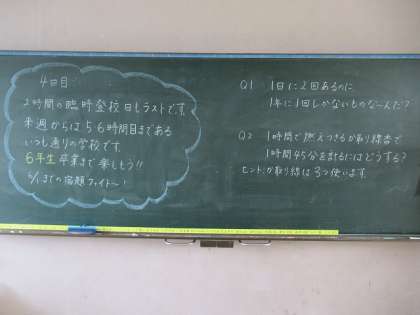 4日目
2時間の臨時登校日もラストです。
来週からは56時間目まである
いつも通りの学校です。
6年生卒業まで楽しもう!!
6/1までの宿題ファイト～!
Q1 1日に2回あるのに
1年に1回しかないものな～んだ?
Q2 1時間で燃えつきるか取り線香で
1時間45分を計るにはどうする?
ヒント:か取り線は3つ使います。